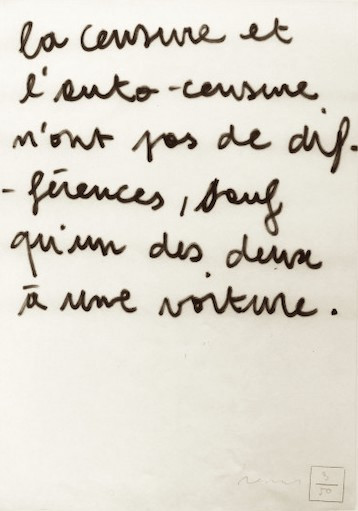 la censure et
l'auto-censure
n'ont pas de dif-
-férences, sauf
qu'un des deux
à une voiture.
3
50